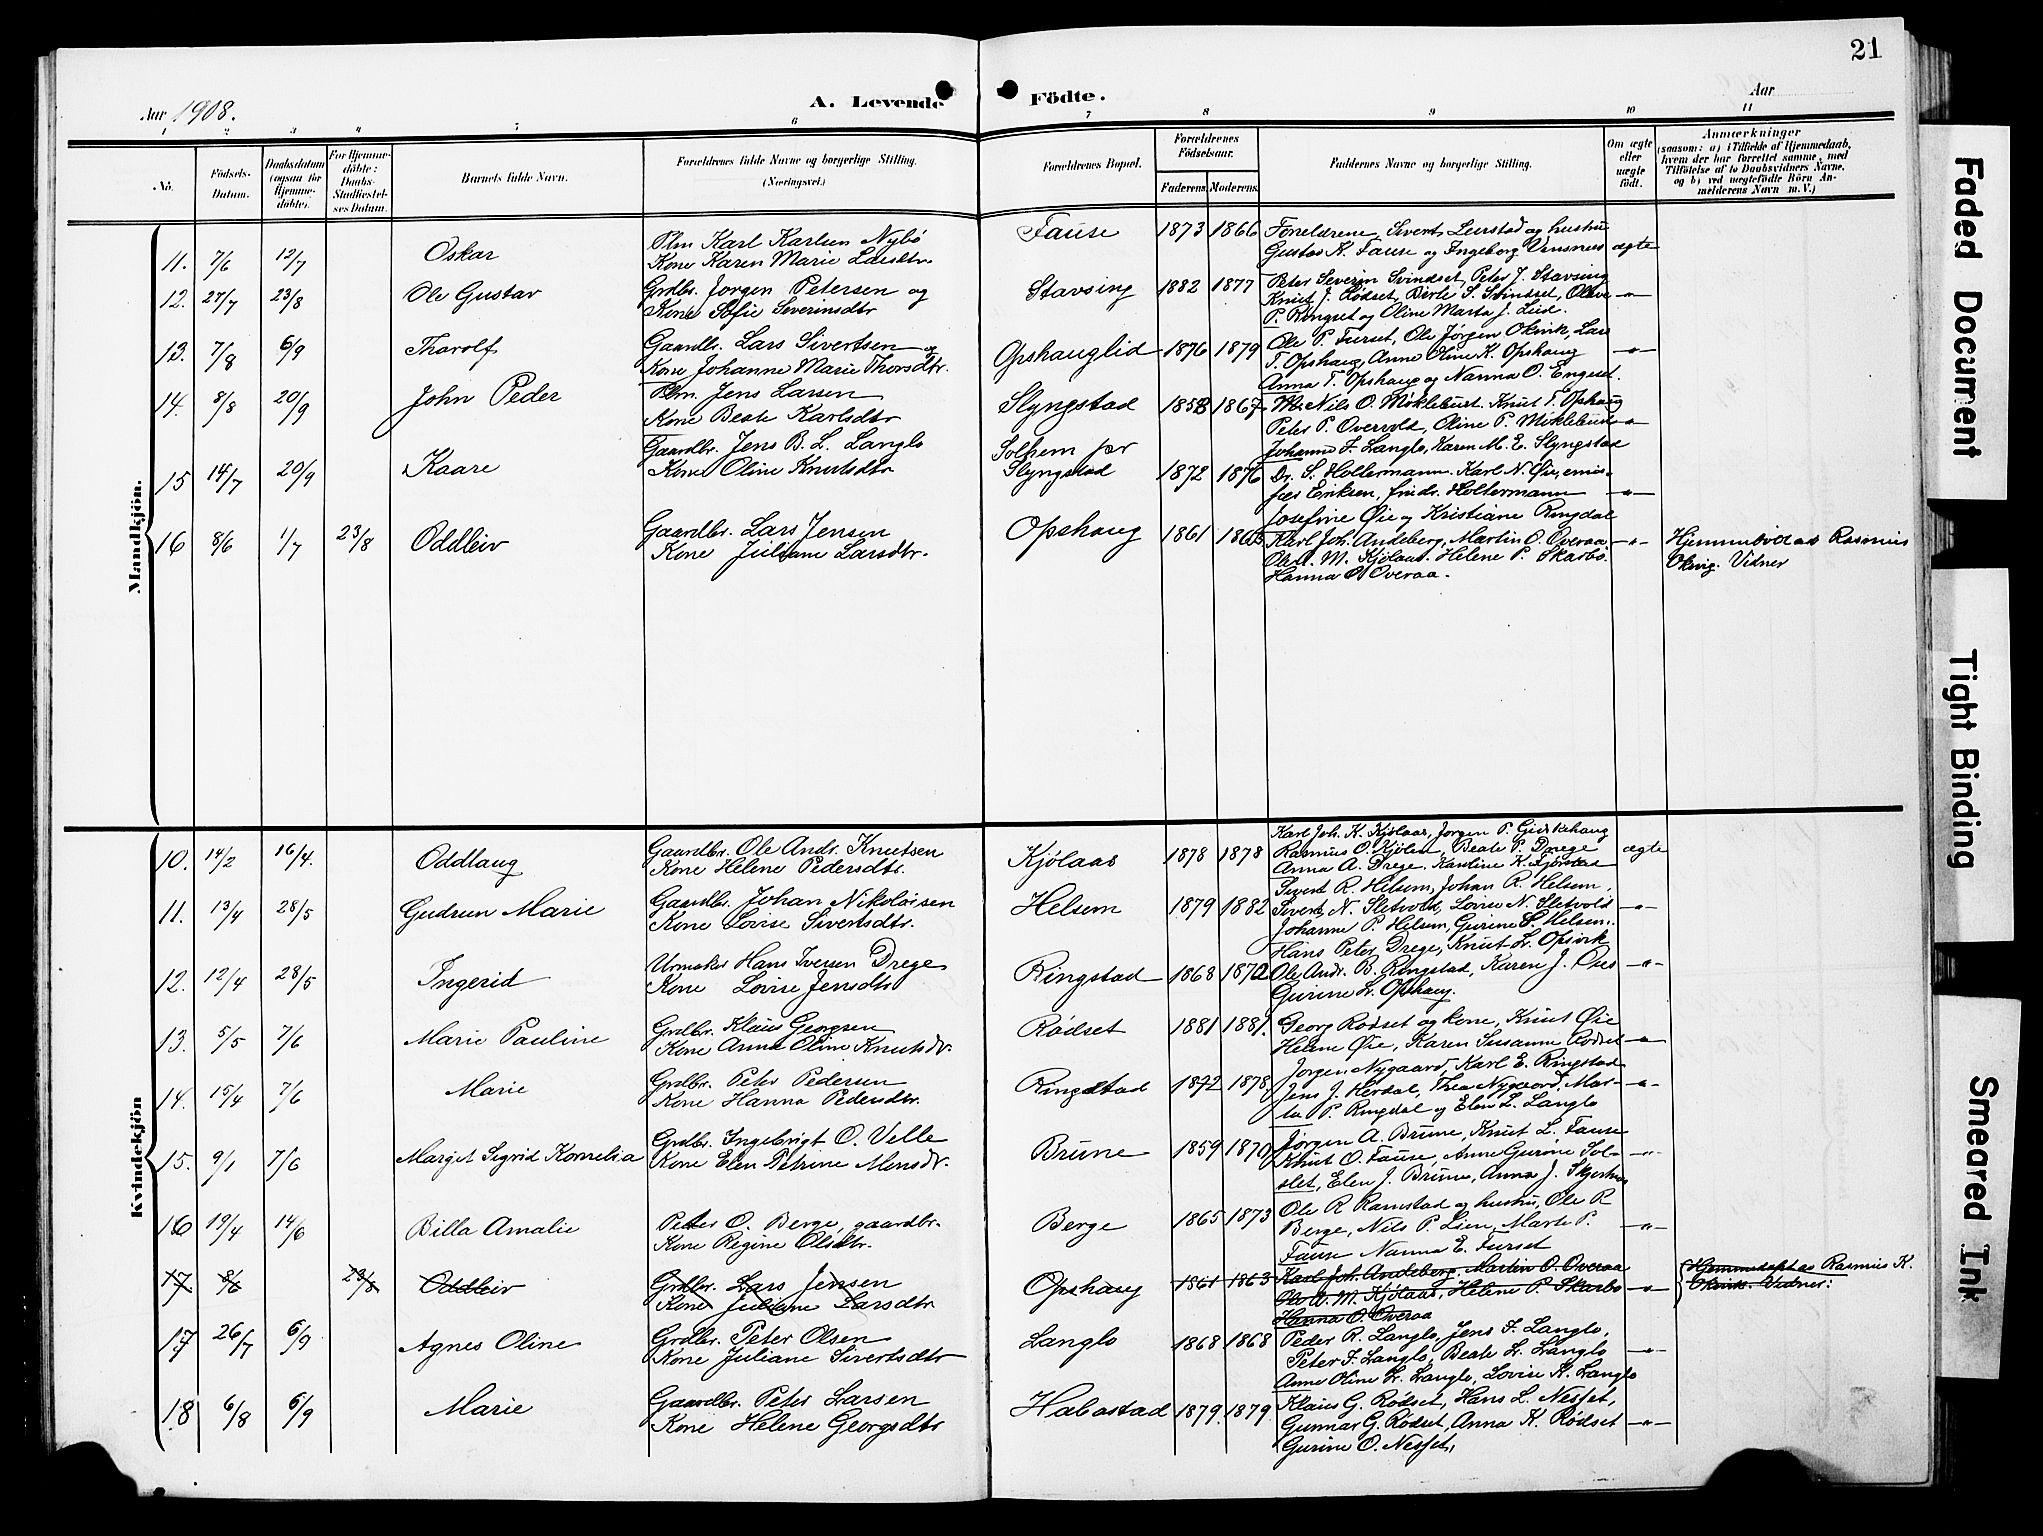 21
Aar 1908.
A. Levende Födte.
Aar
1 2 3 4 5 6 7 8 9 10 11
No.
Födsels-
Datum.
Daabsdatum
(ogsaa for
Hjemme-
döbte).
For Hjemme-
döbte:
Daabs-
Stadfæstel-
ses Datum.
Barnets fulde Navn.
Forældrenes fulde Navne og borgerlige Stilling.
(Næringsvei.)
Forældrenes Bopæl.
Forældrenes
Födselsaar.
Faderens. Moderens.
Faddernes Navne og borgerlige Stilling.
Om ægte
eller
uægte
födt.
Anmærkninger
(saasom: a) i Tilfælde af Hjemmedaab,
hvem der har forrettet samme, med
Tilföielse af to Daabsvidners Navne,
og b) ved uægtefödte Börn An-
melderens Navn m. V.)
Mandkjön.
11. 7/6 12/7 Oskar
Plm Karl Karlsen Nybö
Kone Karen Marie Larsdtr.
Fause 1873 1866
Forældrene, Sivert Leirstad og hustru
Gustav K. Fause og Ingeborg Vensnes ægte
12. 27/7 23/8 Ole Gustav
Grdbr. Jorgen Petersen og
Kone Sofie Severinsdtr
Stavsing 1882 1877
Peter Severin Svindset, Peter J. Stavsing
Knut J. Rodset, Berte S. Svindset, Olave -"-
P. Ringset og Oline Marta J. Lied.
13. 7/8 6/9 Tharolf
Gaardbr. Lars Sivertsen og
Kone Johanne Marie Thorsdtr.
Opshauglid 1876 1879
Ole P. Furset, Ole Jørgen Olsvik, Lars
T. Opshaug, Anne Oline K. Opshaug -"-
Anna T. Opshaug og Nanna O. Engeset.
14. 8/8 20/9 John Peder
Plm. Jens Larsen
Kone Beate Karlsdtr
Slyngstad 1858 1867
Nils O. Miklebust. Knut T. Opshaug
Peter P. Overvold, Oline P. Miklebust -"-
Johanne F. Langlo, Karen M. E. Slyngstad
15 14/7 20/9 Kaare
Gaardbr. Jens B. L. Langlo
Kone Oline Knutsdtr
Solhem pr
Slyngstad 1872 1876
Dr. S. Holtermann. Karl N. Øie, emis-
fær Eriksen, frudr. Holtermann -"-
Josefine Øie og Kristiane Ringdal
16 8/6 1/7 23/8 Oddleiv
Gaardbr. Lars Jensen
Kone Juliane Larsdtr.
Opshaug 1861
Karl Joh. Andeberg, Martin O. Overaa -"-
Ole A. M. Kjölaas. Helene P. Skarbö.
Hanna O. Overaa.
Rasmus
Olsvig. Vidner
Kvindekjön
10. 14/2 16/4. Oddlaug
Gaardbr. Ole Andr. Knutsen
Kone Helene Pedersdtr.
Kjölaas 1878 1878
Karl Joh. K. Kjölaas, Jorgen P. Giskehaug
Rasmus O. Kjölen, Beate P. Drege ægte
Anna A. Drege. Karoline K. Fjorstad
11. 13/4 28/5 Gudrun Marie
Gaardbr. Johan Nikolaisen
Kone Lovise Sivertsdtr.
Helsem 1879 1882
Sivert R. Helsem, Johan R. Helsem,
Sivert N. Sletvold, Lovise N. Sletvold -"-
Johanne P. Helsem, Gurine S. Helsem.
12. 12/4 28/5 Ingerid
Urmaker Hans Iversen Drege
Kone Lovise Jensdtr
Ringstad 1868 1872
Hans Peter Drege, Knut L. Opsvik
Ole Andr. B. Ringstad, Karen J. Øies -"-
Gurine L. Opshaug.
13. 5/5 7/6 Marie Pauline
Grdbr. Klaus Georgsen
Kone Anna Oline Knutsdr.
Rödset 1881 1881.
Georg Rödset og kone, Knut Øie
Helene Øie, Karen Susanne Rödset -"-
14. 15/4 7/6 Marie
Grdbr. Peter Pedersen
Kone Hanna Pedersdtr.
Ringstad 1878,
Jorgen Nygaard, Karl E. Ringstad
Jens J. Herdal, Thea Nygaard, Mar- -"-
ta P. Ringdal og Elen L. Langlo
15. 9/1 7/6 Margit Sigrid Kornelia
Grdbr. Ingebrigt O. Velle
Kone Elen Petrine Monsdr.
Brune 1859 1870
Jørgen A. Brune, Knut L. Fause
Knut O. Fause, Anne Gurine Sol- -"-
slet, Elen J. Brune, Anna J. Skjortnes
16 19/4 14/6 Billa Amalie
Peter O. Berge, gaardbr.
Kone Regine Olsdtr.
Berge 1865 1873
Ole R Ramstad og hustru, Ole R
Berge, Nils P. Lien, Marte P. -"-
Fause Nanna E. Furset
17 8/6 23/8 Oddleiv
Grdbr. Lars Jensen
Kone Juliane Larsdtr
Opshaug 1861 1863
Karl Joh. Andeberg. Martin O. Overaa
Ole A. M. Kjölaas, Helene P. Skarbo -"-
Hanna O. Overaa
Hjemmedöpt av Rasmus K.
Olsvik. Vidner:
17 26/7 6/9 Agnes Oline
Grdbr. Peter Olsen
Kone Juliane Sivertsdtr
Langlo 1868 1868
Peder R. Langlo, Jens F. Langlo,
Peter F. Langlo, Beate L. Langlo -"-
Anne Oline L. Langlo, Lovise K. Langlo
18 6/8 6/9 Marie
Gaardbr. Peter Larsen
Kone Helene Georgsdtr
Habostad 1879 1879
Klaus G. Rödset, Hans L. Nesset,
Gunnar G. Rödset, Anna K. Rödset -"-
Gurine O. Nesset,
Faded Document
Tight Binding
Smeared Ink